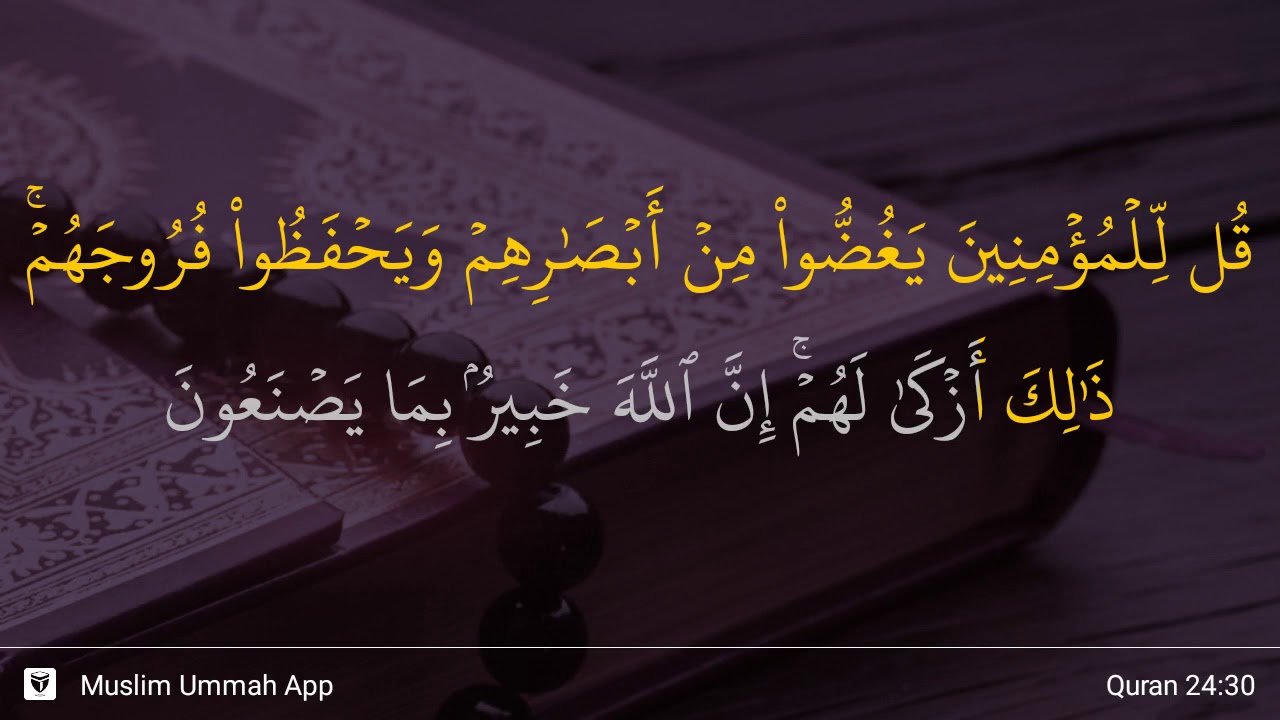 قُل لِّلْمُؤْمِنِينَ يَغُضُّوا۟ مِنْ أَبْصَـٰرِهِمْ وَيَحْفَظُوا۟ فُرُوجَهُمْ ۚ
ذَٰلِكَ أَزْكَىٰ لَهُمْ ۚ إِنَّ ٱللَّهَ خَبِيرٌۢ بِمَا يَصْنَعُونَ
Muslim Ummah App
Quran 24:30